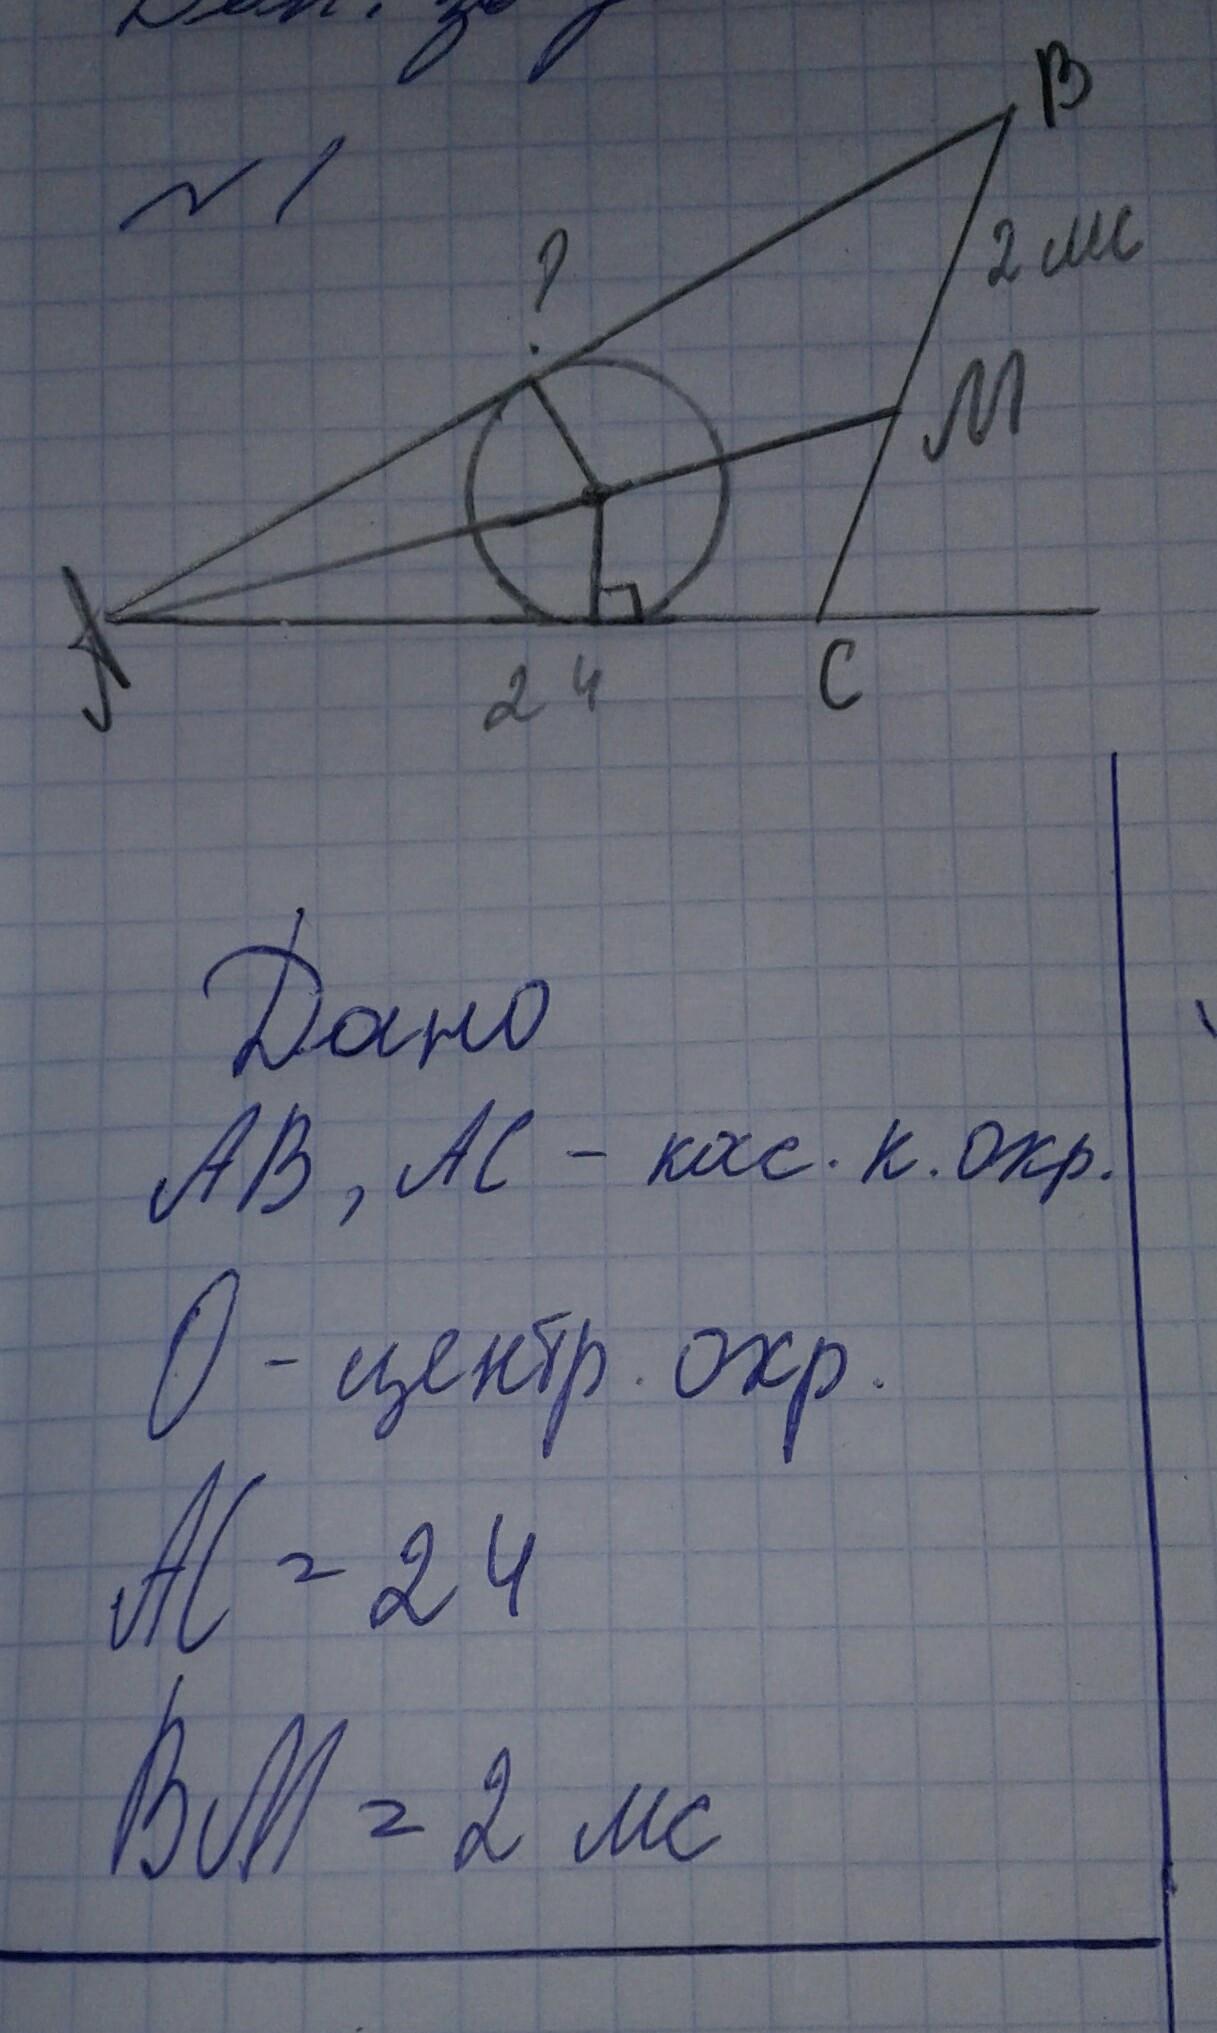 №1
B
?
2 мс
M
A
24
C
Дано
AB, AC - кас. к. окр.
O - центр. окр.
AC = 24
BM = 2 мс